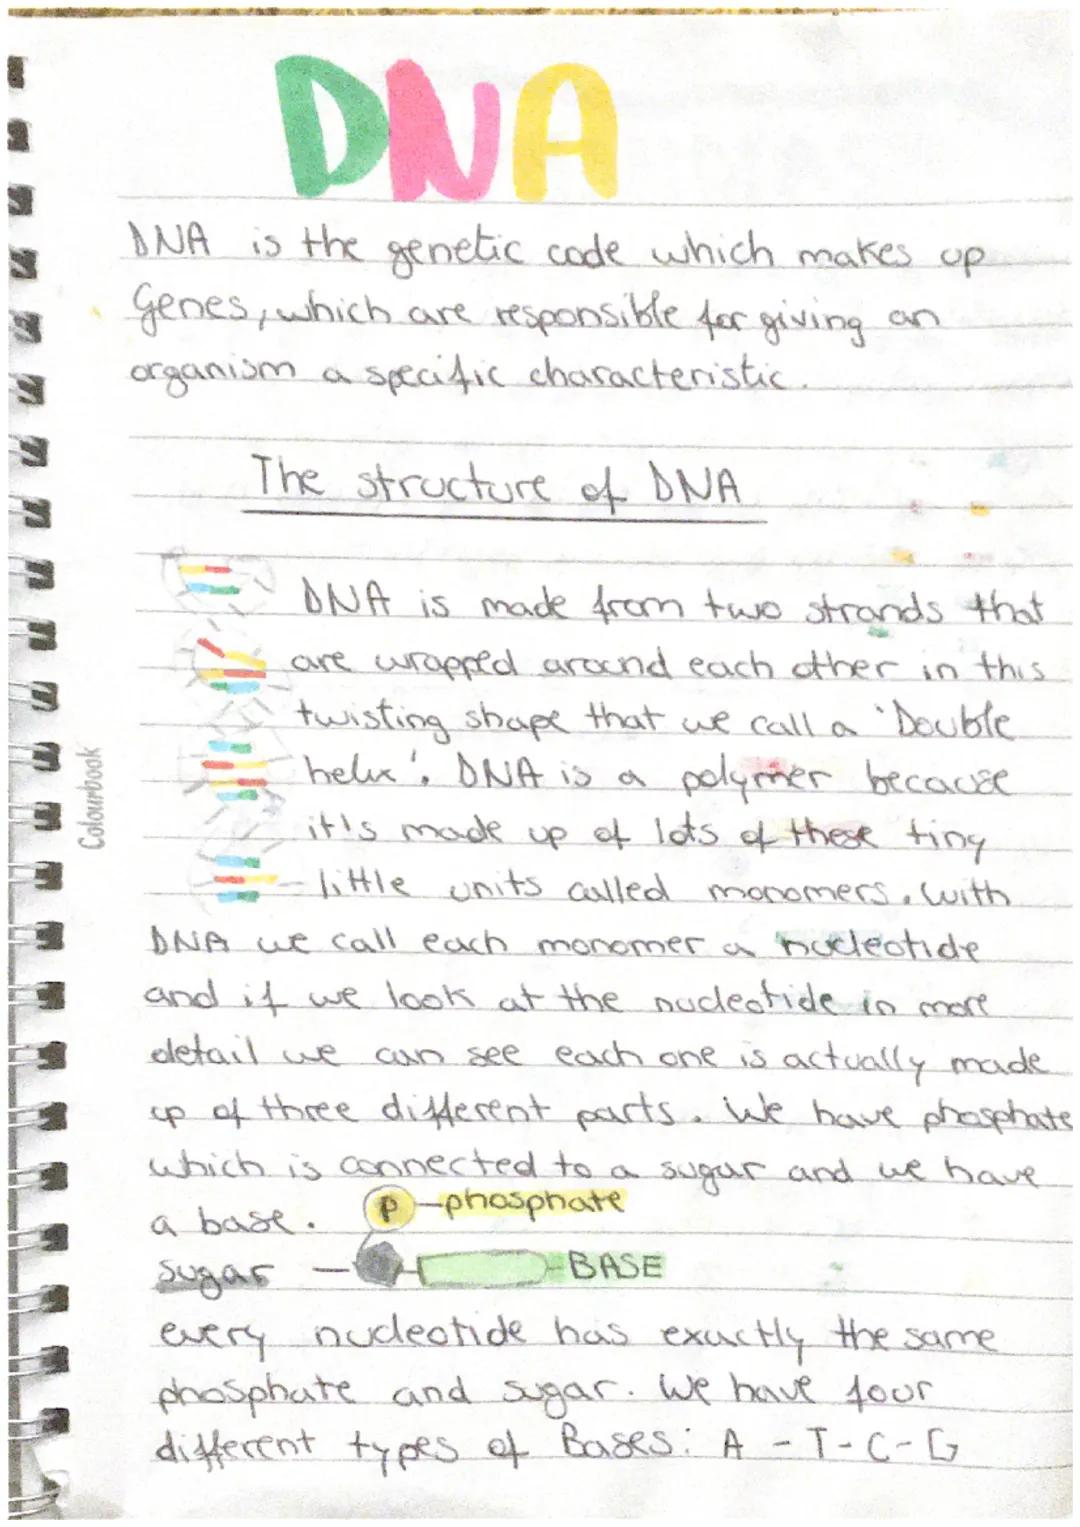 DNA
DNA is the genetic code which makes up
Genes, which are responsible for giving an
organism a specific characteristic.
The structure of DNA
DNA is made from two strands that
are wrapped around each other in this
twisting shape that we call a 'Double
helix'. DNA is a polymer because
it's made up of lots of these tiny
little units called monomers. With
DNA we call each monomer a nucleotide
and if we look at the nucleotide in more
detail we can see each one is actually made
up of three different parts. We have phosphate
which is connected to a sugar and we have
a base.
P - phosphate
sugar - - BASE
every nucleotide has exactly the same
phosphate and sugar. We have four
different types of Bases: A - T - C - G
Colourbook